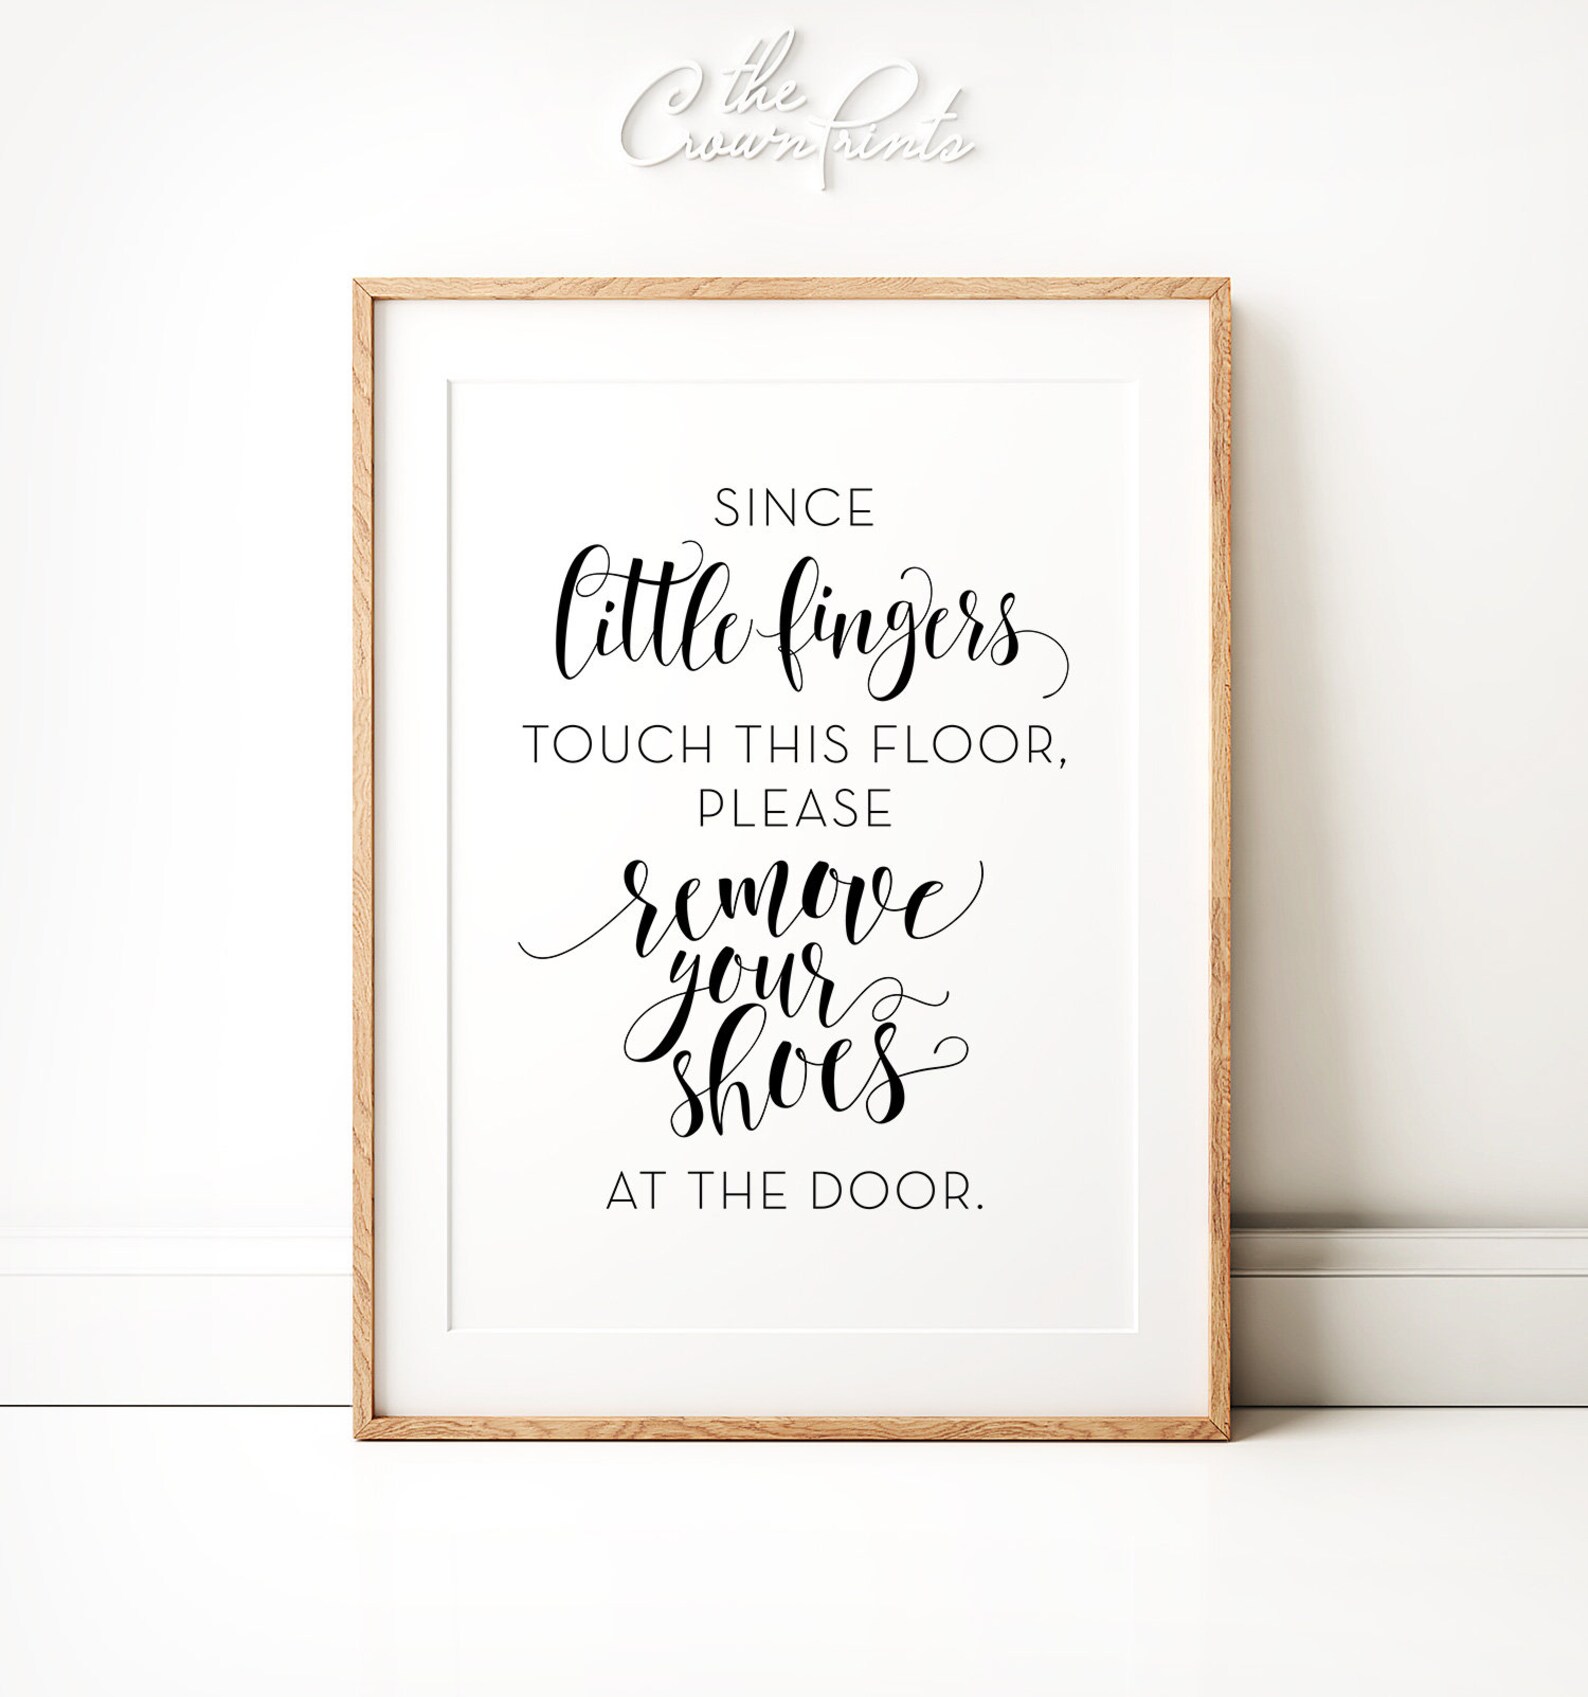 the
Crown Prints
SINCE
little fingers
TOUCH THIS FLOOR,
PLEASE
remove
your
shoes
AT THE DOOR.